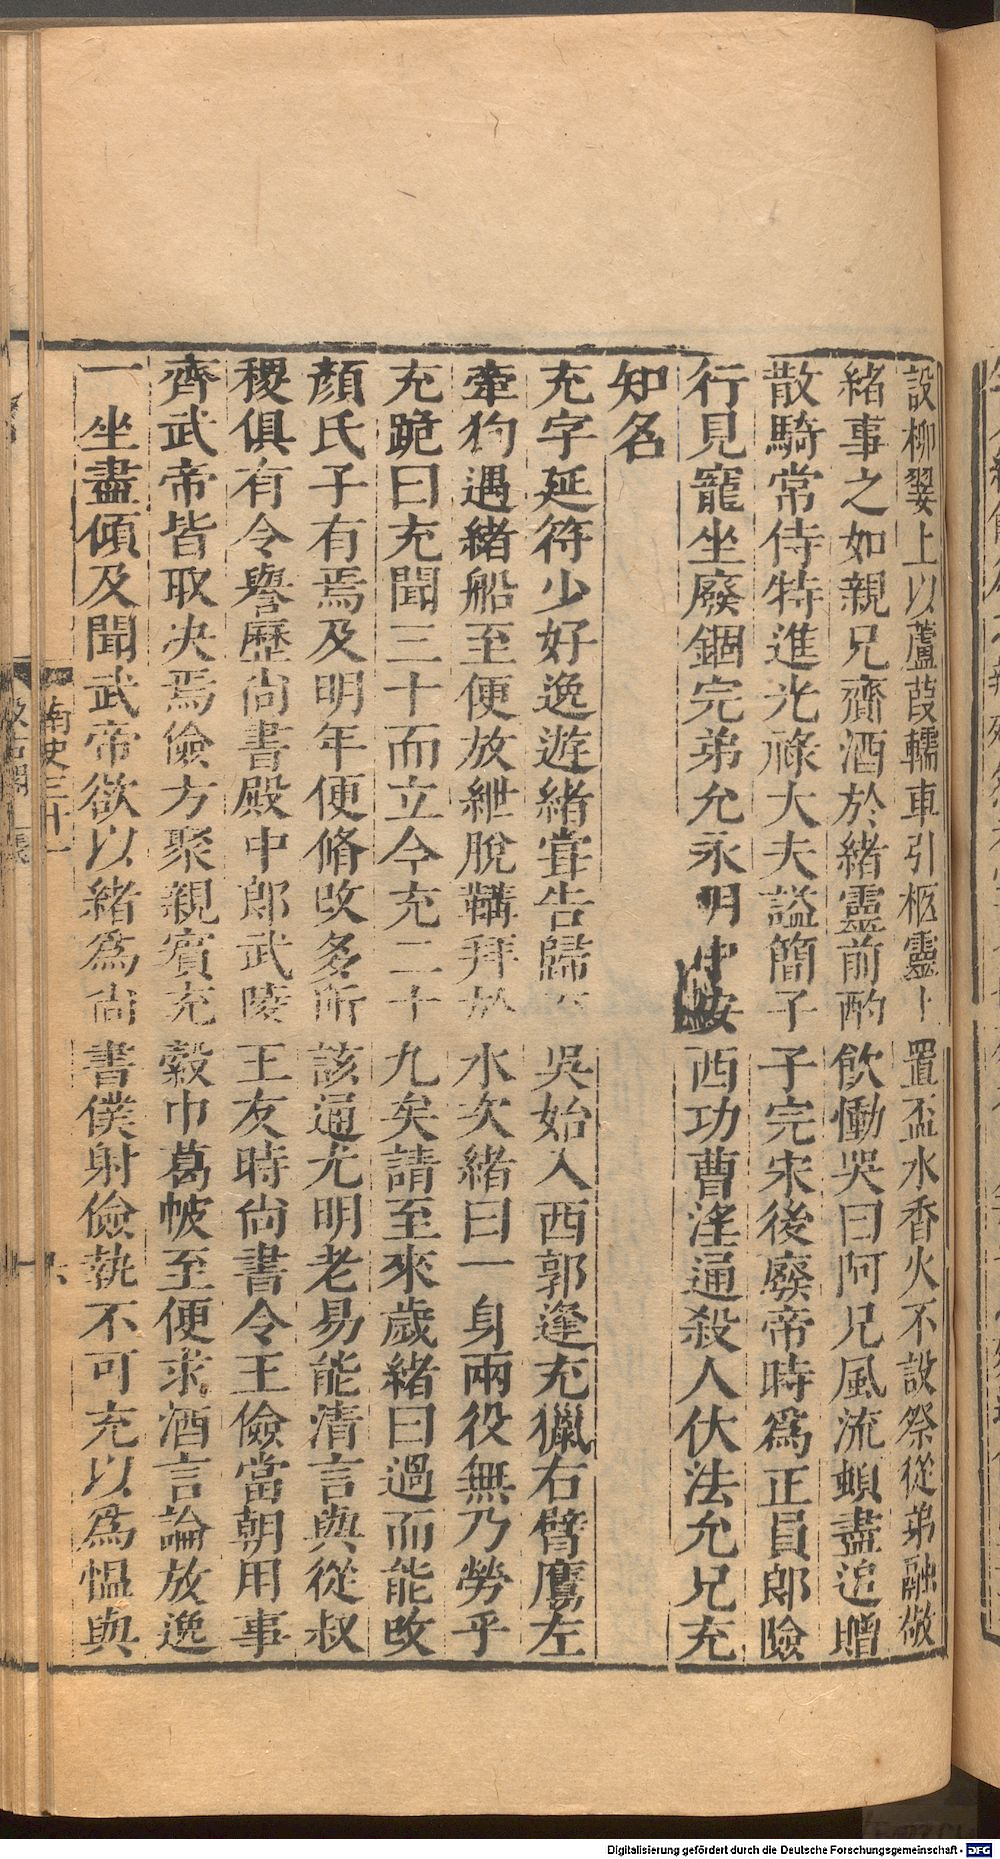 設柳翣上以蘆葭轜車引柩靈上置盃水香火不設祭從弟融敬
緒事之如親兄齎酒於緒靈前酌飲慟哭曰阿兄風流頓盡追贈
散騎常侍特進光祿大夫謚簡子子完宋後廢帝時爲正員郎險
行見寵坐廢錮完弟允永明中安西功曹淫通殺人伏法允兄充
知名
充字延符少好逸遊緒甞告歸吳始入西郭逢充獵右臂鷹左
牽狗遇緒船至便放紲脫韝拜於水次緒曰一身兩役無乃勞乎
充跪曰充聞三十而立今充二十九矣請至來歲緒曰過而能改
顏氏子有焉及明年便脩改多所該通尤明老易能清言與從叔
稷俱有令譽歷尚書殿中郎武陵王友時尚書令王儉當朝用事
齊武帝皆取决焉儉方聚親賓充縠巾葛帔至便求酒言論放逸
一坐盡傾及聞武帝欲以緒爲尚書僕射儉執不可充以爲慍與
南史三十一
六
汲古閣
Digitalisierung gefördert durch die Deutsche Forschungsgemeinschaft - DFG